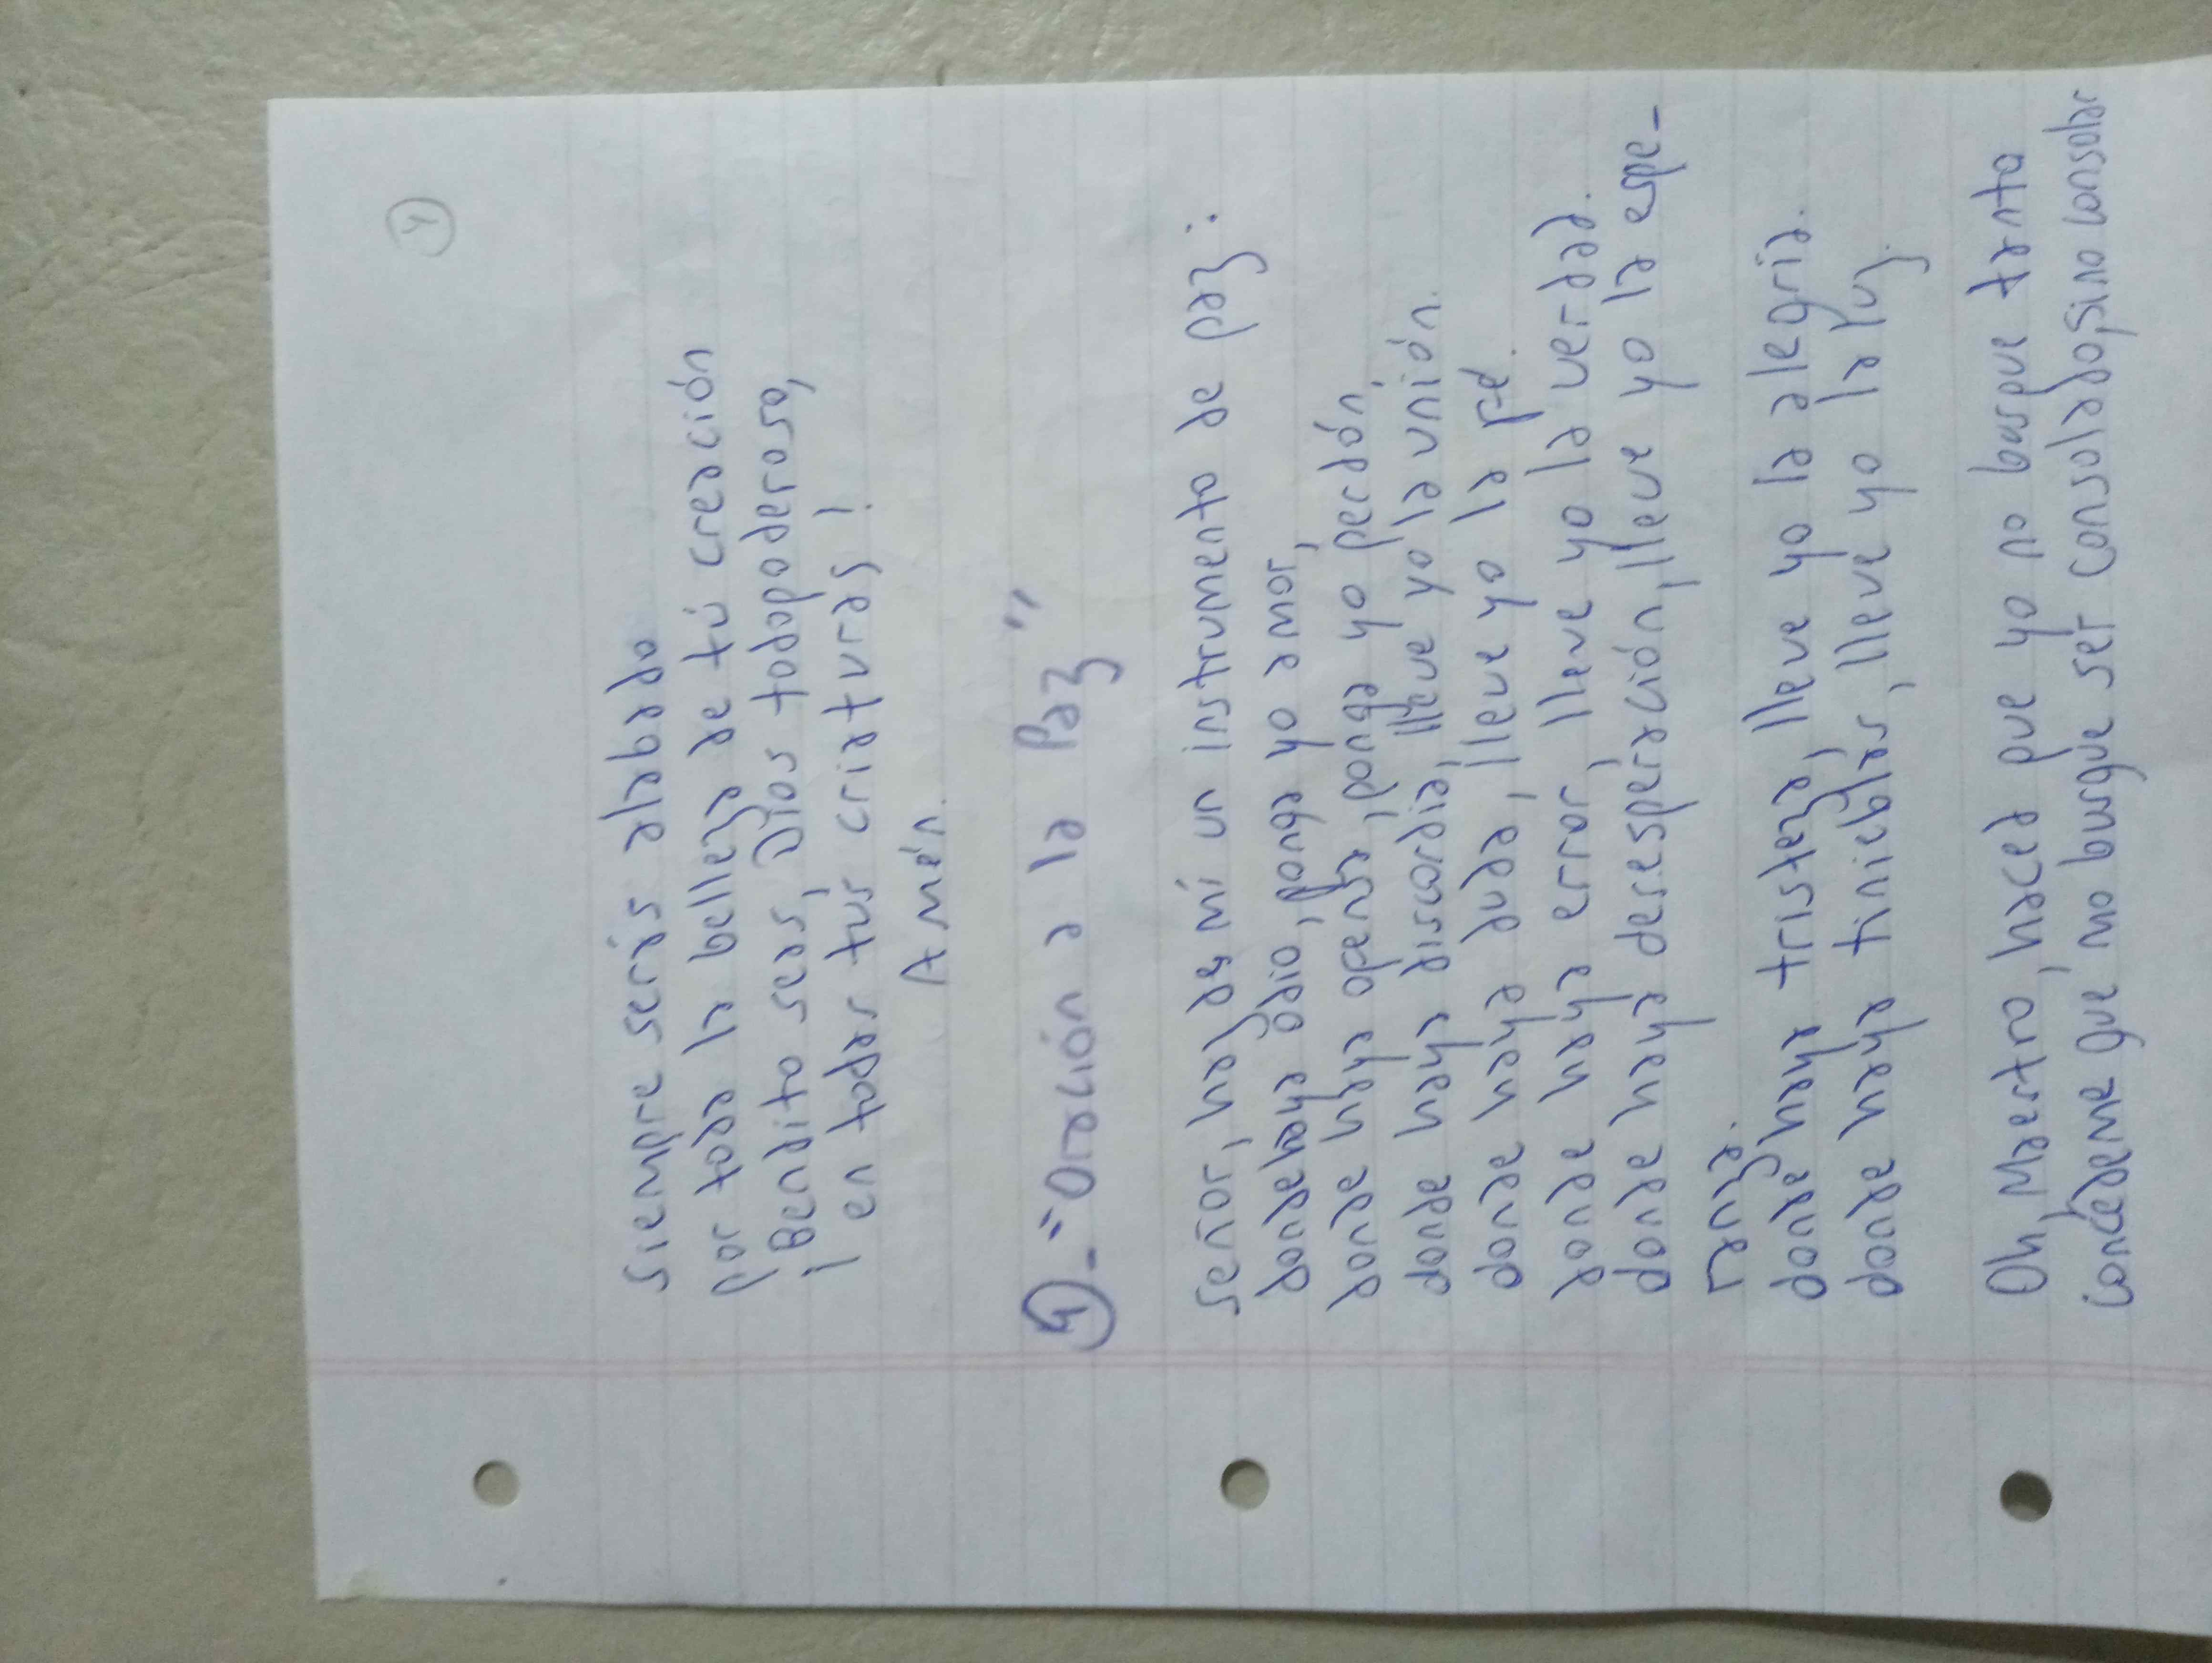 4
siempre serás alabado
por toda la belleza de tú creación
¡Bendito seas, Dios todopoderoso,
en todas tus criaturas!
Amén.
4.- "Oración a la Paz"
Señor, haz de mí un instrumento de paz:
donde haya ódio, ponga yo amor,
donde haya ofensa, ponga yo perdón,
donde haya discordia, lleve yo la unión.
donde haya duda, lleve yo la fé.
donde haya error, lleve yo la verdad.
donde haya desesperación, lleve yo la espe-
ranza.
donde haya tristeza, lleve yo la alegría.
donde haya tinieblas, lleve yo la luz.
Oh, Maestro, haced que yo no busque tanto
Concédeme que no busque ser consolado, sino consolar